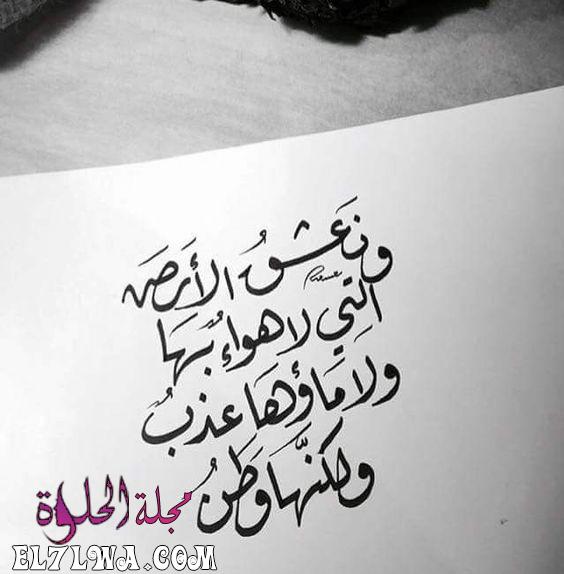 ونَعشقُ الأَرضَ
التِي لا هواءُ بهَا
ولا مَاؤهَا عذبُ
ولكنّهَا وَطنُ
مجلة الحلوة
EL7LWA.COM